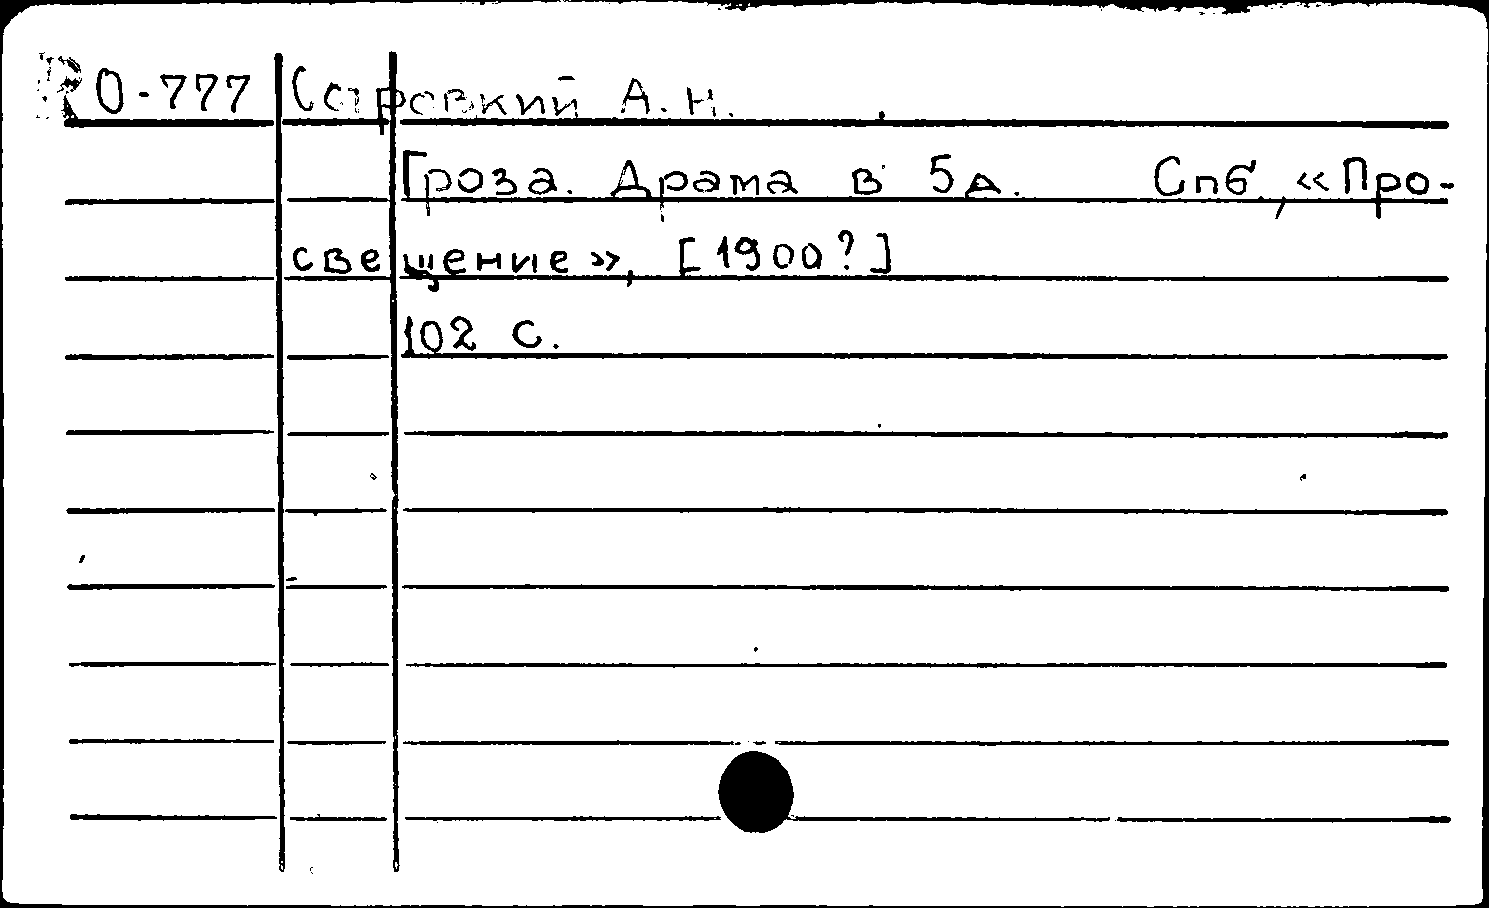 R О-777 Островкий А. Н.
Гроза. Драма в 5д. Спб., «Про-
свещение», [1900?]
102 с.